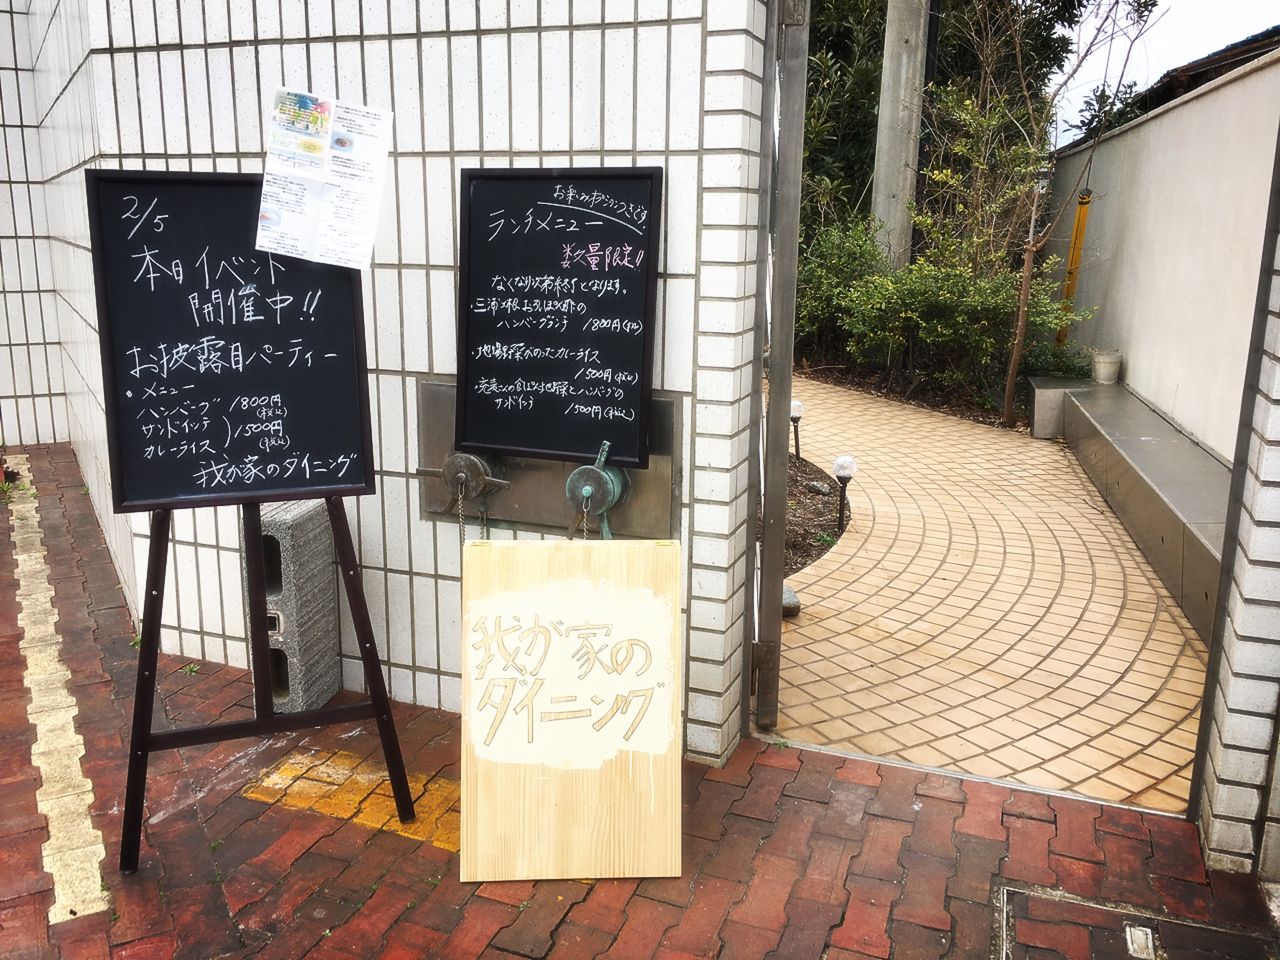 2/5
本日イベント
開催中!!
お披露目パーティー
・メニュー
ハンバーグ 1800円
(税込)
サンドイッチ
カレーライス
1500円
(税込)
我が家のダイニング
お楽しみオプションつきです
ランチメニュー
数量限定!!
なくなり次第終了となります。
・三浦大根おろしぽん酢の
ハンバーグランチ 1800円(税込)
・地場野菜がのったカレーライス
1500円(税込)
地野菜とハンバーグの
サンドイッチ 1500円(税込)
我が家の
ダイニング